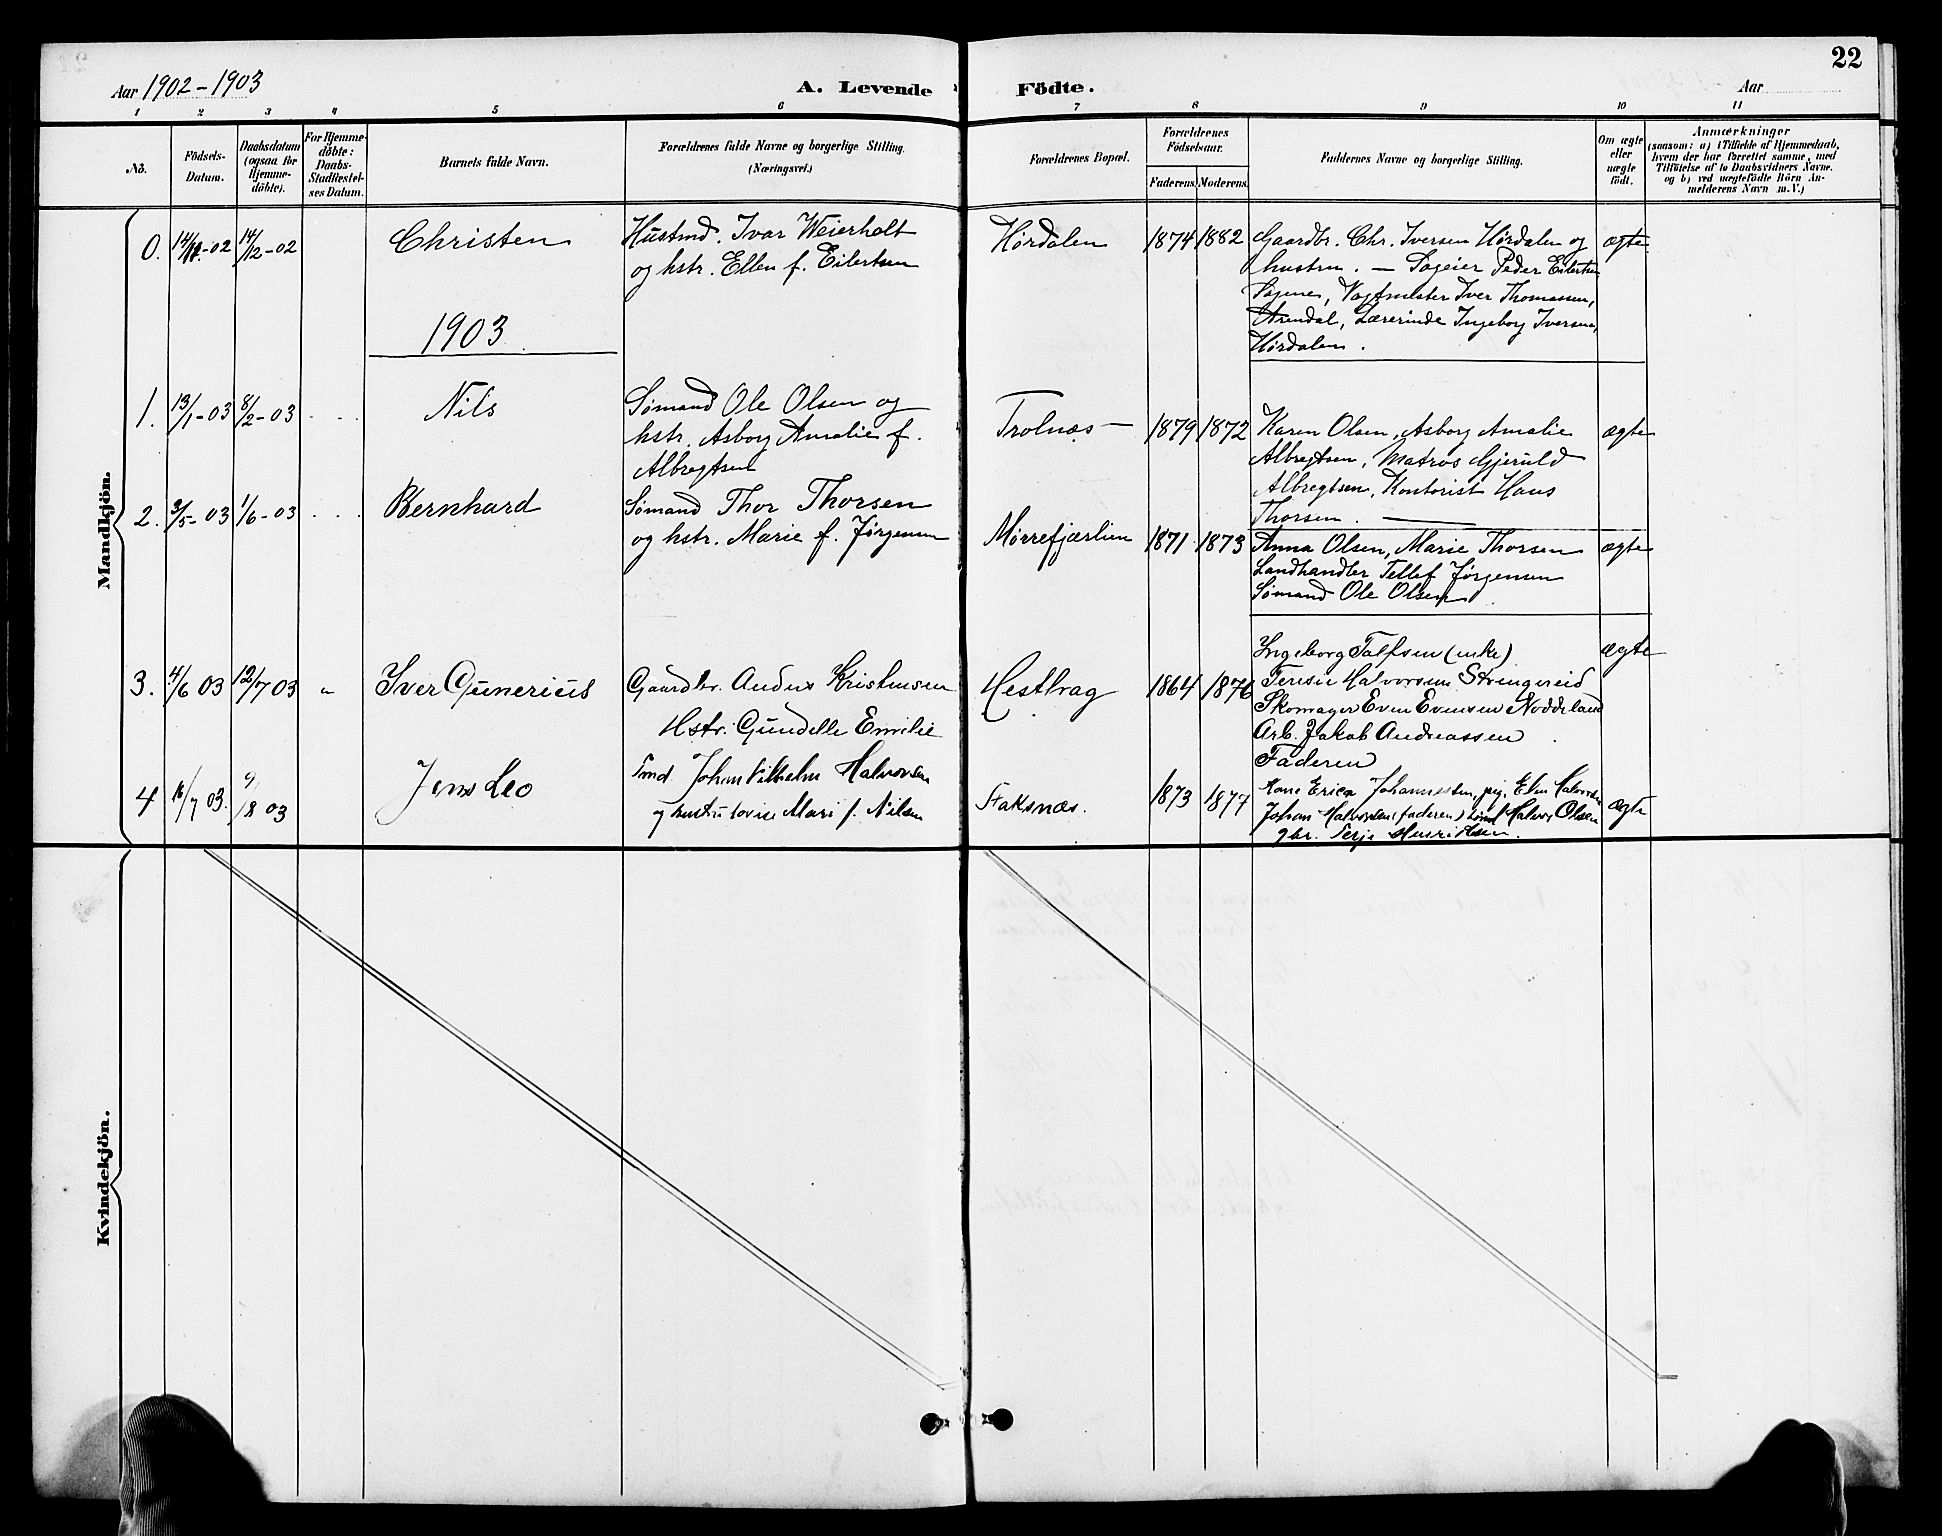 22
Aar 1902-1903
A. Levende Födte.
Aar
1 2 3 4 5 6 7 8 9 10 11
No.
Födsels-Datum.
Daabsdatum (ogsaa for Hjemme-döbte).
For Hjemme-döbte: Daabs-Stadfæstel-ses Datum.
Barnets fulde Navn.
Forældrenes fulde Navne og borgerlige Stilling.
(Næringsvei.)
Forældrenes Bopæl.
Forældrenes Födselsaar.
Faderens. Moderens.
Faddernes Navne og borgerlige Stilling.
Om ægte eller uægte födt.
Anmærkninger
(saasom: a) i Tilfælde af Hjemmedaab,
hvem der har forrettet samme, med
Tilföielse af to Daabsvidners Navne,
og b) ved uægtefödte Börn An-
melderens Navn m. V.)
Mandkjön.
0. 14/12-02 Christen
Hustmd. Ivar Weierholt
og hstr. Ellen f. Eilertsen
Hørdalen 1874 1882
Gaardbr. Chr. Iversen Hørdalen og
hustru. — Sageier Peder Eilertsen
Sagene, Vagtmester Iver Thomassen,
Arendal, Lærerinde Ingeborg Iversen,
Hørdalen.
ægte
1903
1. 13/1-03 8/2-03 Nils
Sømand Ole Olsen og
hstr. Asborg Amalie f.
Albregtsen
Trolnæs — 1879 1872
Karen Olsen, Asborg Amalie
Albregtsen, Matros Gjeruld
Albregtsen, Kontorist Hans
Thorsen. —
ægte
2. 3/5-03 1/6-03 Bernhard
Sømand Thor Thorsen
og hstr. Marie f. Jørgensen
Mørrefjærlien 1871 1873
Anna Olsen, Marie Thorsen
Landhandler Tellef Jørgensen
Sømand Ole Olsen
ægte
3. 4/6 03 12/7 03 " Iver Gunerius
Gaardbr. Anders Kristensen
Hstr. Gundelle Emilie
Hesthag 1864 1876
Ingeborg Talfsen (enke)
Terese Halvorsen Strengereid
Skomager Even Evensen Noddeland
Arb. Jakob Andreassen
Faderen
ægte
4 16/7 03. 9/8 03 Jens Leo
Smd. Johan Vilhelm Halvorsen
og hustru Lovise Mari f. Nilsen
Staksnæs. 1873 1877
Johannessen, pig. Elen Halvorsen
Johan Halvorsen (faderen) Halvor Olsen
gbr. Terje Henriksen.
ægte
Kvindekjön.